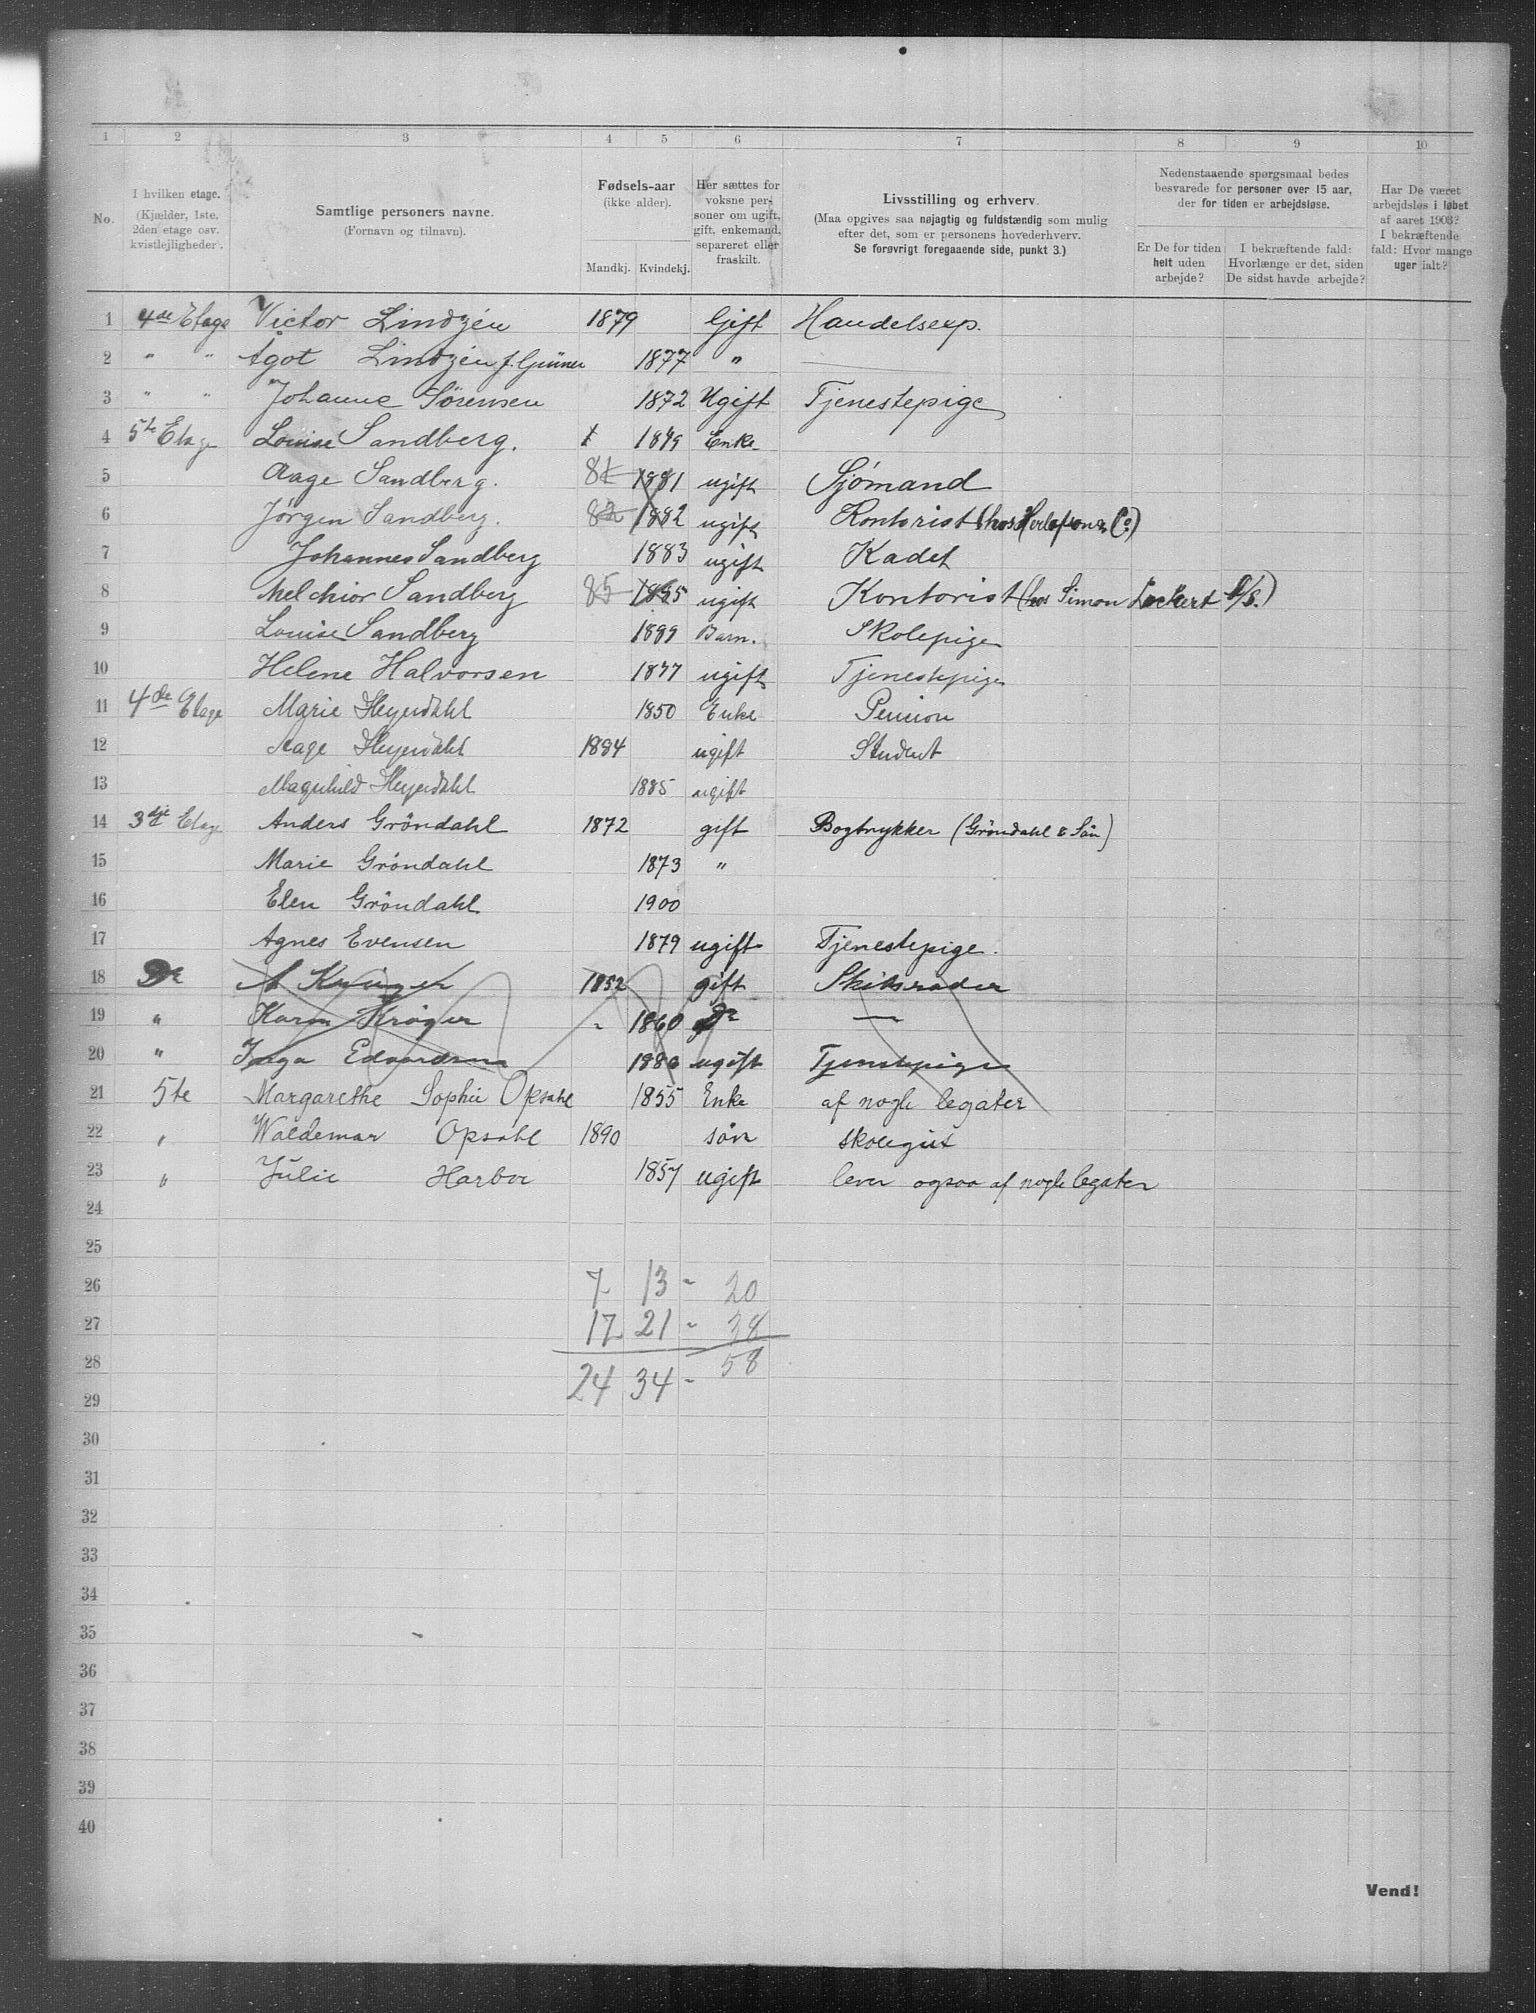 1 2 3 4 5 6 7 8 9 10
No.
I hvilken etage. (Kjælder, 1ste, 2den etage osv. kvistleiligheder).
Samtlige personers navne. (Fornavn og tilnavn).
Fødsels-aar (ikke alder). Mandkj. Kvindekj.
Her sættes for voksne personer om ugift, gift, enkemand, separeret eller fraskilt.
Livsstilling og erhverv. (Maa opgives saa nøjagtig og fuldstændig som mulig efter det, som er personens hovederhverv. Se forøvrigt foregaaende side, punkt 3.)
Nedenstaaende spørgsmaal bedes besvarede for personer over 15 aar, der for tiden er arbejdsløse.
Er De for tiden helt uden arbejde?
I bekræftende fald: Hvorlænge er det, siden De sidst havde arbejde?
Har De været arbejdsløs i løbet af aaret 1903? I bekræftende fald: Hvor mange uger ialt?
1 4de Etage Victor Lindzén 1879 Gift Handelsexp.
2 " " Agot Lindzén f. Grüner 1877 "
3 " " Johanne Sørensen 1872 Ugift Tjenestepige
4 5te Etage Louise Sandberg. 1 1849 Enke
5 Aage Sandberg. 81 1881 ugift Sjömand
6 Jørgen Sandberg. 82 1882 ugift Kontorist (hos & Co)
7 Johannes Sandberg 1883 ugift Kadet
8 Melchior Sandberg 85 1885 ugift Kontorist (hos Simon Lockert )
9 Louise Sandberg 1899 Barn. Skolepige
10 Helene Halvorsen 1877 ugift Tjenestepige
11 4de Etage Marie Heyerdahl 1850 Enke Pension
12 Aage Heyerdahl 1884 ugift Student
13 Magnhild Heyerdahl 1885 ugift
14 3dje Etage Anders Gröndahl 1872 gift Bogtrykker (Gröndahl & Sön)
15 Marie Gröndahl 1873 "
16 Elen Gröndahl 1900
17 Agnes Evensen 1879 ugift Tjenestepige.
18 A 1852 gift
19 " Karen Krøger " 1860 —
20 " Inga Edvardsen 1880 ugift Tjenestepige
21 5te Margarethe Sophie Opsahl 1855 Enke af nogle legater
22 " Waldemar Opsahl 1890 søn skolegut
23 " Julie Harboe 1857 ugift lever ogsaa af nogle legater
24
25
26 7 13 - 20
27 17 21 - 38
28 24 34 - 58
29
30
31
32
33
34
35
36
37
38
39
40
Vend!